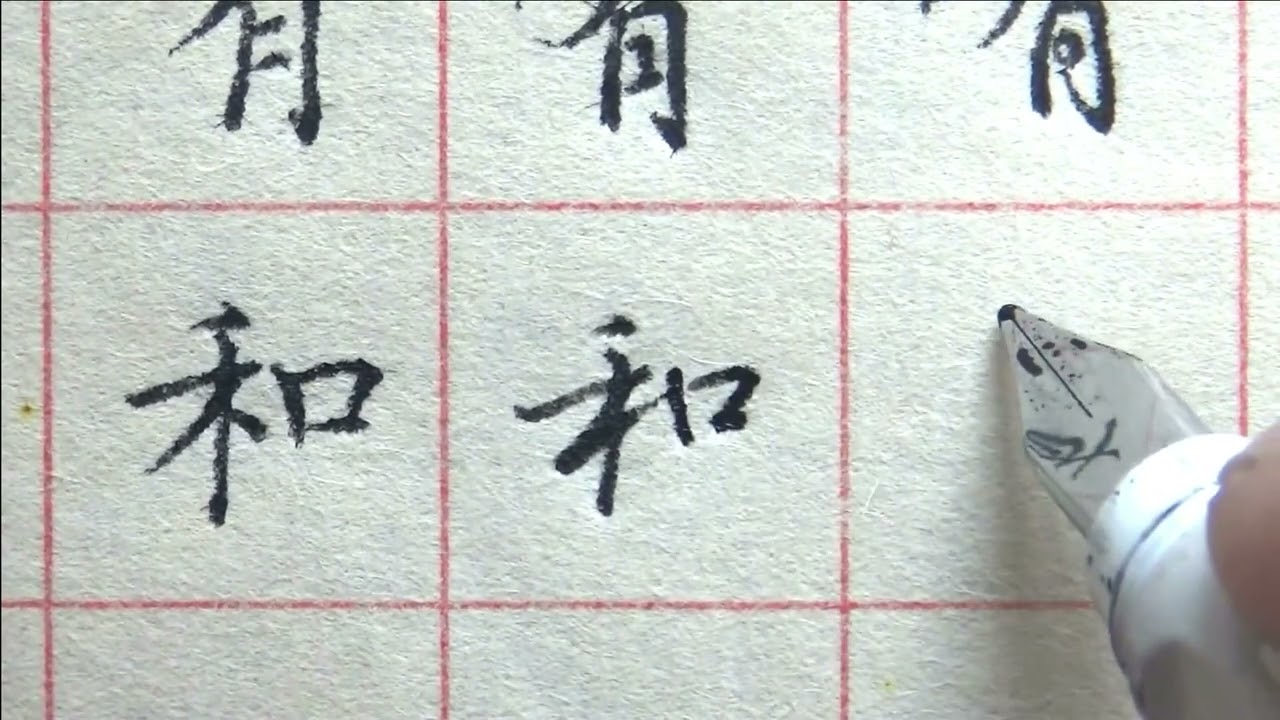 有 有 有
和 和